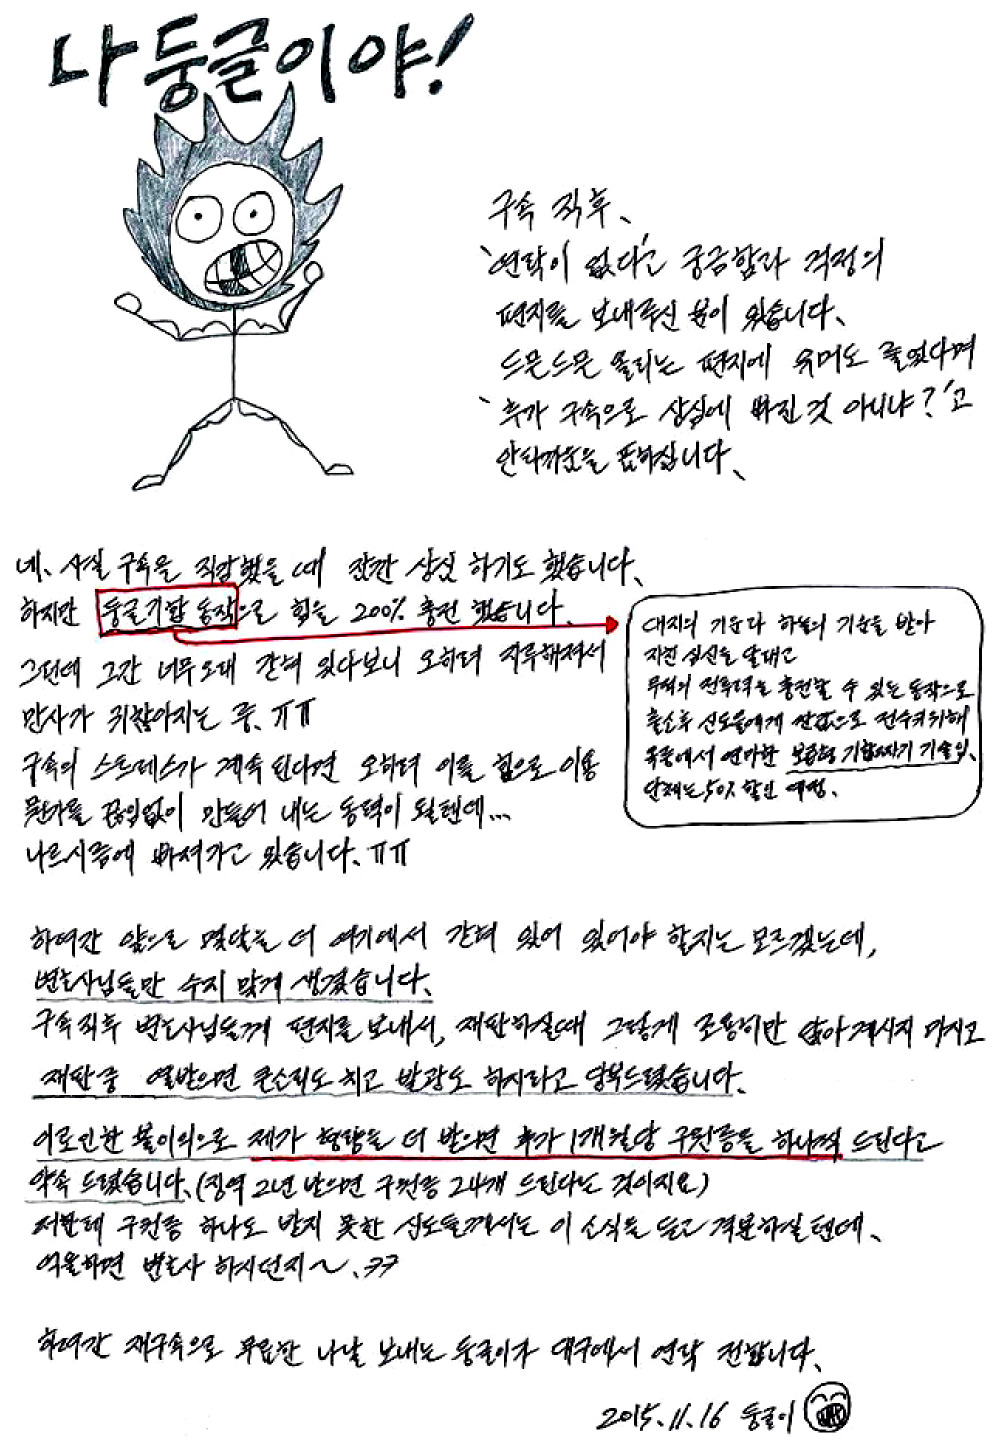 나 둥글이야!
구속 직후、
'연락이 없다'고 궁금함과 걱정의
편지를 보내주신 분이 있습니다、
드문드문 올리는 편지에 유머도 줄었다며
'추가 구속으로 상심에 빠진 것 아니냐?'고
안타까움을 표하십니다、
네、사실 구속을 직감했을 때 잠깐 상심 하기도 했습니다、
하지만 둥글기합 동작으로 힘을 200% 충전 했습니다.
그런데 그간 너무 오래 갇혀 있다보니 오히려 지루해져서
만사가 귀찮아지는 중、ㅠㅠ
구속의 스트레스가 계속 된다면 오히려 이를 힘으로 이용
뭔가를 끊임없이 만들어 내는 동력이 될텐데...
나르시즘에 빠져가고 있습니다、ㅠㅠ
대지의 기운과 하늘의 기운을 받아
지친 심신을 달래고
무적의 전투력을 충전할 수 있는 동작으로
출소후 신도들에게 헐값으로 전수키위해
옥중에서 연마한 보급형 기합짜기 기술임、
단체는 50% 할인 예정、
하여간 앞으로 몇달을 더 여기에서 갇혀 있어 있어야 할지는 모르겠는데,
변호사님들만 수지 맞게 생겼습니다、
구속직후 변호사님들께 편지를 보내서, 재판하실때 그렇게 조용히만 앉아계시지 마시고
재판중 열받으면 큰소리도 치고 발광도 하시라고 당부드렸습니다、
이로인한 불이익으로 제가 형량을 더 받으면 추가 1개월당 구원증을 하나씩 드린다고
약속 드렸습니다、(징역 2년 받으면 구원증 24개 드린다는 것이지요)
저한테 구원증 하나도 받지 못한 신도들께서는 이 소식을 듣고 격분하실텐데、
억울하면 변호사 하시던지~、ㅋㅋ
하여간 재구속으로 무료한 나날 보내는 둥글이가 대구에서 연락 전합니다、
2015.11.16 둥글이